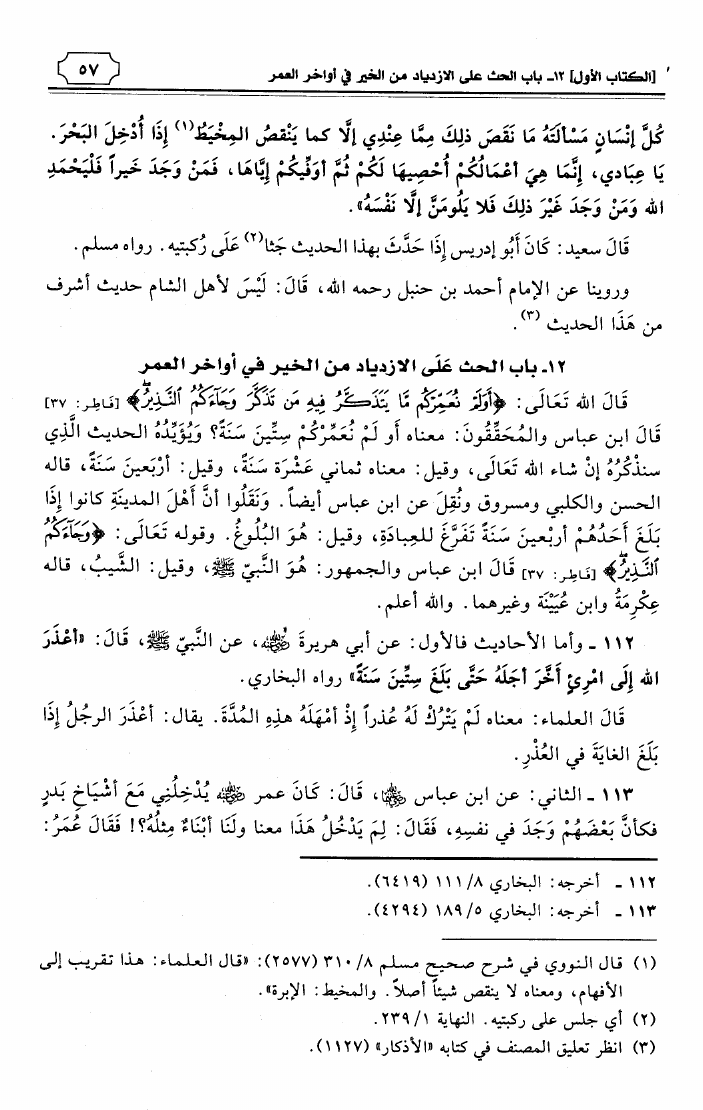 [الكتاب الأول] ١٢ـ باب الحث على الازدياد من الخير في أواخر العمر
٥٧
كُلَّ إنْسَانٍ مَسْألَتَهُ مَا نَقَصَ ذلِكَ مِمَّا عِنْدِي إلَّا كما يَنْقصُ المِخْيَطُ(١) إِذَا أُدْخِلَ البَحْرَ.
يَا عِبَادي، إنَّمَا هِيَ أعْمَالُكُمْ أُحْصِيهَا لَكُمْ ثُمَّ أوَفِّيكُمْ إيَّاهَا، فَمَنْ وَجَدَ خَيراً فَلْيَحْمَدِ
الله وَمَنْ وَجَدَ غَيْرَ ذلِكَ فَلا يَلُومَنَّ إلَّا نَفْسَهُ».
قَالَ سعيد: كَانَ أَبُو إدريس إِذَا حَدَّثَ بهذا الحديث جَثا(٢) عَلَى رُكبتيه. رواه مسلم.
وروينا عن الإمام أحمد بن حنبل رحمه الله، قَالَ: لَيْسَ لأهل الشام حديث أشرف
من هَذَا الحديث(٣).
١٢ـ باب الحث عَلَى الازدياد من الخير في أواخر العمر
قَالَ الله تَعَالَى: ﴿أَوَلَمْ نُعَمِّرْكُم مَّا يَتَذَكَّرُ فِيهِ مَن تَذَكَّرَ وَجَآءَكُمُ ٱلنَّذِيرُۖ﴾ [فَاطِر: ٣٧]
قَالَ ابن عباس والمُحَقِّقُونَ: معناه أَو لَمْ نُعَمِّرْكُمْ سِتِّينَ سَنَةً؟ وَيُؤَيِّدُهُ الحديث الَّذِي
سنذْكُرُهُ إنْ شاء الله تَعَالَى، وقيل: معناه ثماني عَشْرَة سَنَةً، وقيل: أرْبَعينَ سَنَةً، قاله
الحسن والكلبي ومسروق ونُقِلَ عن ابن عباس أيضاً. وَنَقَلُوا أنَّ أَهْلَ المدينَةِ كانوا إِذَا
بَلَغَ أَحَدُهُمْ أربْعينَ سَنَةً تَفَرَّغَ للعِبادَةِ، وقيل: هُوَ البُلُوغُ. وقوله تَعَالَى: ﴿وَجَآءَكُمُ
ٱلنَّذِيرُۖ﴾ [فَاطِر: ٣٧] قَالَ ابن عباس والجمهور: هُوَ النَّبيّ ﷺ، وقيل: الشَّيبُ، قاله
عِكْرِمَةُ وابن عُيَيْنَة وغيرهما. والله أعلم.
١١٢ ـ وأما الأحاديث فالأول: عن أبي هريرةَ رضي الله عنه، عن النَّبيّ ﷺ، قَالَ: «أعْذَرَ
الله إِلَى امْرِئٍ أَخَّرَ أجَلَهُ حَتَّى بَلَغَ سِتِّينَ سَنَةً» رواه البخاري.
قَالَ العلماء: معناه لَمْ يَتْرُكْ لَهُ عُذراً إذْ أمْهَلَهُ هذِهِ المُدَّةَ. يقال: أعْذَرَ الرجُلُ إِذَا
بَلَغَ الغايَةَ في العُذْرِ.
١١٣ ـ الثاني: عن ابن عباس رضي الله عنهما، قَالَ: كَانَ عمر رضي الله عنه يُدْخِلُنِي مَعَ أشْيَاخِ بَدرٍ
فكأنَّ بَعْضَهُمْ وَجَدَ في نفسِهِ، فَقَالَ: لِمَ يَدْخُلُ هَذَا معنا ولَنَا أبْنَاءٌ مِثلُهُ؟! فَقَالَ عُمَرُ:
١١٢ ـ أخرجه: البخاري ٨/ ١١١ (٦٤١٩).
١١٣ ـ أخرجه: البخاري ٥/ ١٨٩ (٤٢٩٤).
(١) قال النووي في شرح صحيح مسلم ٨/ ٣١٠ (٢٥٧٧): «قال العلماء: هذا تقريب إلى
الأفهام، ومعناه لا ينقص شيئاً أصلاً. والمخيط: الإبرة».
(٢) أي جلس على ركبتيه. النهاية ١/ ٢٣٩.
(٣) انظر تعليق المصنف في كتابه «الأذكار» (١١٢٧).